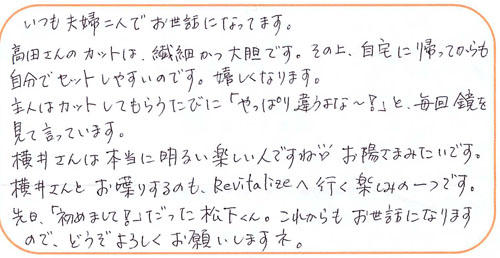 いつも夫婦二人でお世話になってます。
高田さんのカットは、繊細かつ大胆です。その上、自宅に帰ってからも
自分でセットしやすいのです。嬉しくなります。
主人はカットしてもらうたびに「やっぱり違うよな〜!」と、毎回鏡を
見て言っています。
横井さんは本当に明るい楽しい人ですね♡ お陽さまみたいです。
横井さんとお喋りするのも、Revitalizeへ行く楽しみの一つです。
先日、「初めまして!」だった松下くん。これからもお世話になります
ので、どうぞよろしくお願いしますネ。